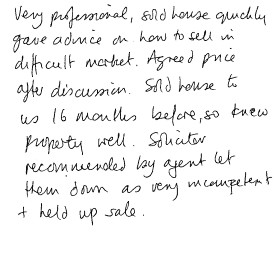 Very professional, sold house quickly
gave advice on how to sell in
difficult market. Agreed price
after discussion. Sold house to
us 16 months before, so knew
property well. Solicitor
recommended by agent let
them down as very incompetent
+ held up sale.